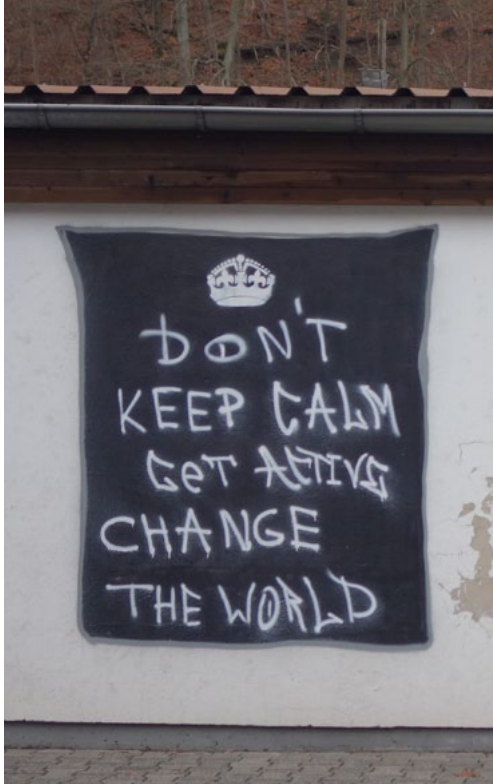 DON'T
KEEP CALM
GeT ACTIVE
CHANGE
THE WORLD